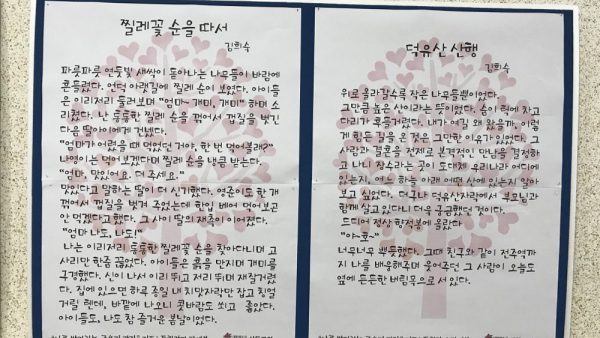 찔레꽃 순을 따서
김희숙
파릇파릇 연둣빛 새싹이 돋아나는 나무들이 바람에
흔들렸다. 언덕 아랫길에 찔레 순이 보였다. 아이들
은 이리저리 둘러보며 "엄마~ 개미, 개미" 하며 소
리쳤다. 난 통통한 찔레 순을 꺾어서 껍질을 벗긴
다음 딸아이에게 건넸다.
"엄마가 어렸을 때 먹었던 거야, 한 번 먹어볼래?"
나영이는 먹어보겠다며 찔레 순을 냉큼 받는다.
"엄마, 맛있어요. 더 주세요."
맛있다고 말하는 딸이 더 신기했다. 영준이도 한 개
꺾어서 껍질을 벗겨 주었는데 한입 베어 먹어보곤
안 먹겠다고 했다. 그 사이 딸의 재촉이 이어졌다.
"엄마 나도, 나도!"
나는 이리저리 통통한 찔레 순을 찾아다니며 고
사리만 한줌 꺾었다. 아이들은 흙을 만지며 개미를
구경했다. 신이 나서 이리 뛰고 저리 뛰며 재잘거렸
다. 집에 있으면 하루 종일 내 치맛자락만 잡고 칭얼
거릴 텐데, 바깥에 나오니 콧바람도 쐬고 좋았다.
아이들도, 나도 참 즐거운 봄날이었다.
덕유산 산행
김희숙
위로 올라갈수록 작은 나무들뿐이었다.
그만큼 높은 산이라는 뜻이었다. 숨이 턱에 차고
다리가 후들거렸다. 내가 여길 왜 왔을까. 이렇
게 힘든 길을 온 것은 그만한 이유가 있었다. 그
사람과 결혼을 전제로 본격적인 만남을 결정하
고 나니 장수라는 곳이 도대체 우리나라 어디에
있는지, 어느 하늘 아래 어떤 산에 있는지 알아
보고 싶었다. 더구나 덕유산자락에서 부모님과
함께 살고 있다니 더욱 궁금했던 것이다.
드디어 정상 향적봉에 올랐다
"야~호~"
너무너무 뿌듯했다. 그때 친구와 같이 전주역까
지 나를 배웅해주며 웃어주던 그 사람이 오늘도
옆에 든든한 버팀목으로 서 있다.